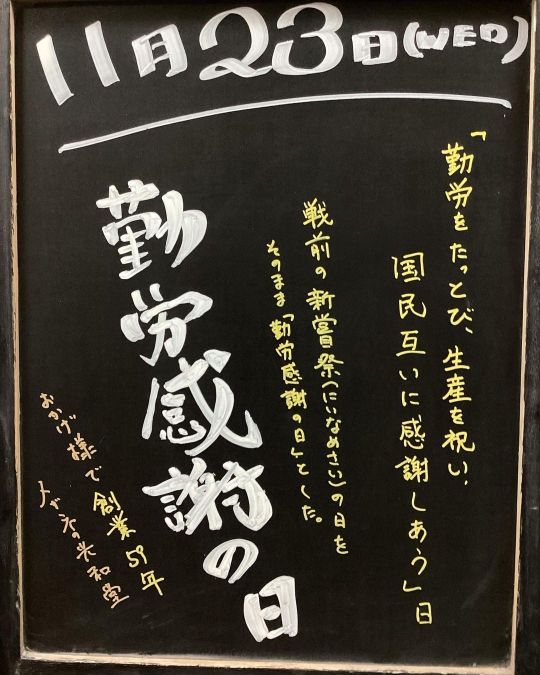 11月23日(WED)
「勤労をたっとび、生産を祝い、
国民互いに感謝しあう」日
戦前の新嘗祭(にいなめさい)の日を
そのまま「勤労感謝の日」とした。
勤労感謝の日
おかげ様で創業59年
メガネの共和堂